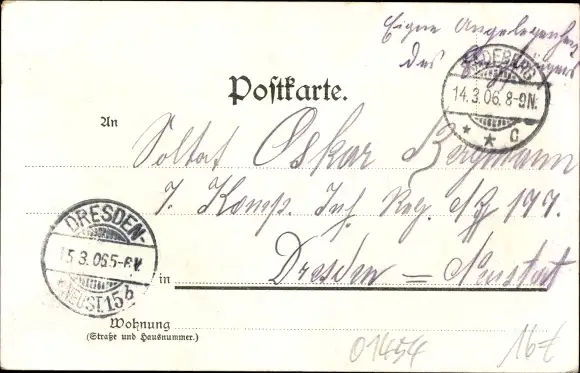 Eigne Angelegenheit
des
Postkarte.
ADEBERG
14.3.06. 8-9N.
* * c
An
Soldat Oskar Bergmann
7. Komp. Inf. Reg. № 177.
DRESDEN-
15.3.06 5-6V.
*NEUST. 15b
in Dresden = Neustadt
Wohnung
(Straße und Hausnummer.)
01454
16€